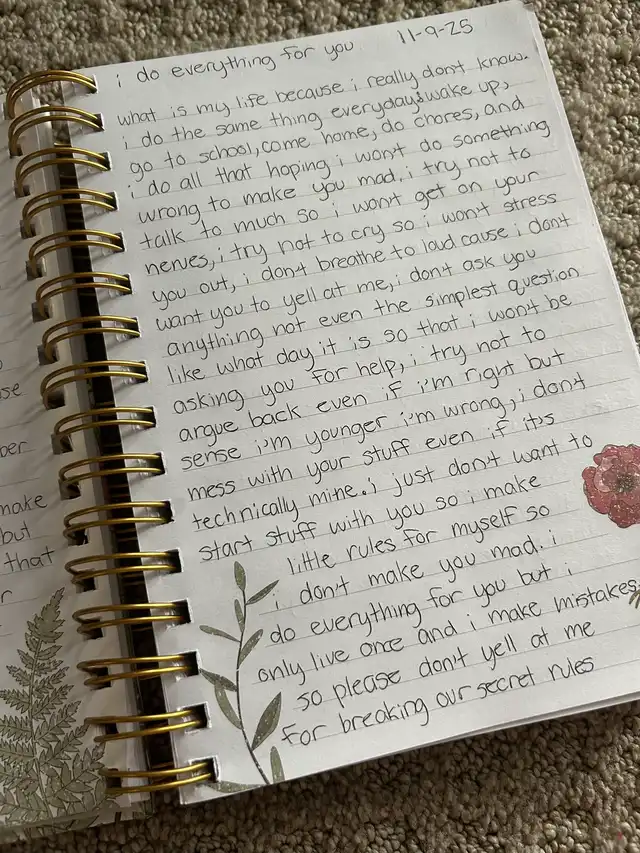 i do everything for you 11-9-25
what is my life because i really don't know.
i do the same thing everyday; wake up,
go to school, come home, do chores, and
i do all that hoping i won't do something
wrong to make you mad. i try not to
talk to much so i won't get on your
nerves, i try not to cry so i won't stress
you out, i don't breathe to loud cause i don't
want you to yell at me, i don't ask you
anything not even the simplest question
like what day it is so that i won't be
asking you for help, i try not to
argue back even if i'm right but
sense i'm younger i'm wrong, i don't
mess with your stuff even if it's
technically mine. i just don't want to
start stuff with you so i make
little rules for myself so
i don't make you mad. i
do everything for you but i
only live once and i make mistakes
so please don't yell at me
for breaking our secret rules
make
but
that